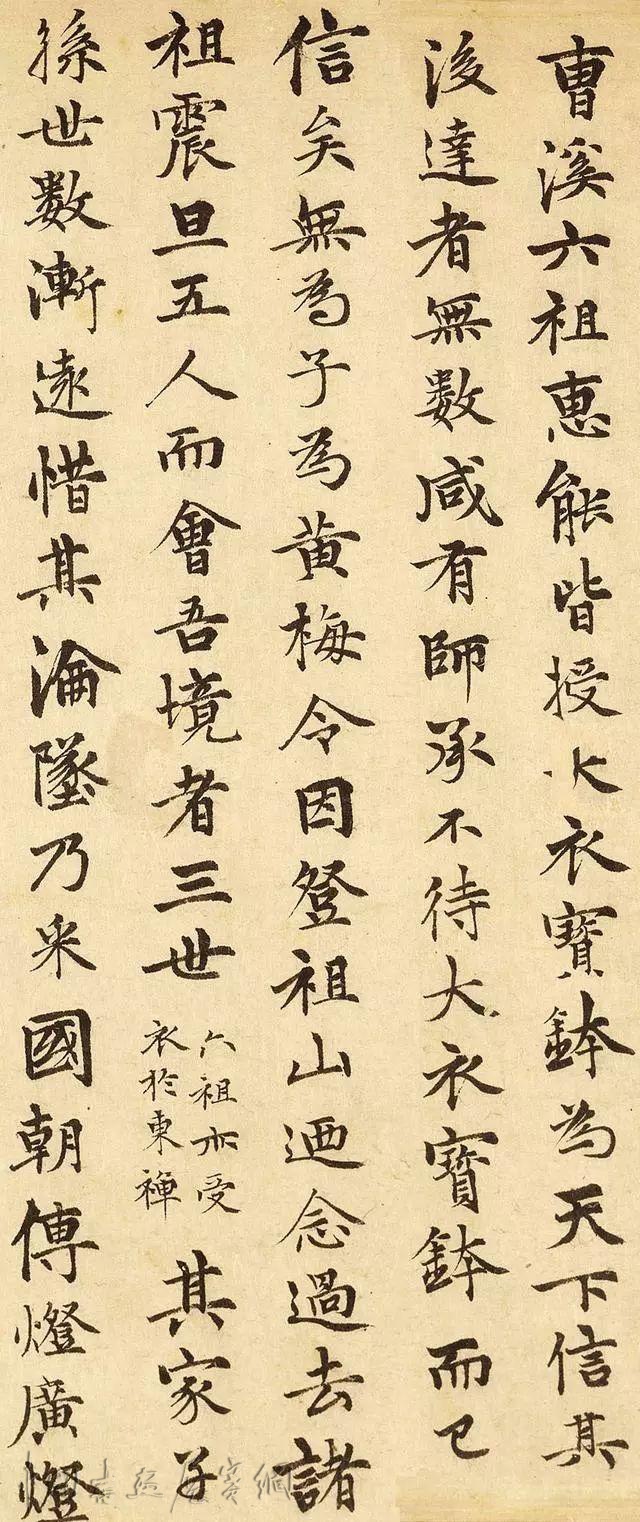 曺溪六祖惠能皆授大衣寶鉢為天下信其
後達者無數咸有師承不待大衣寶鉢而已
信矣無為子為黃梅令因登祖山迺念過去諸
祖震旦五人而會吾境者三世
六祖亦受
衣於東禪
其家子
孫世數漸遠惜其淪墜乃采國朝傳燈廣燈